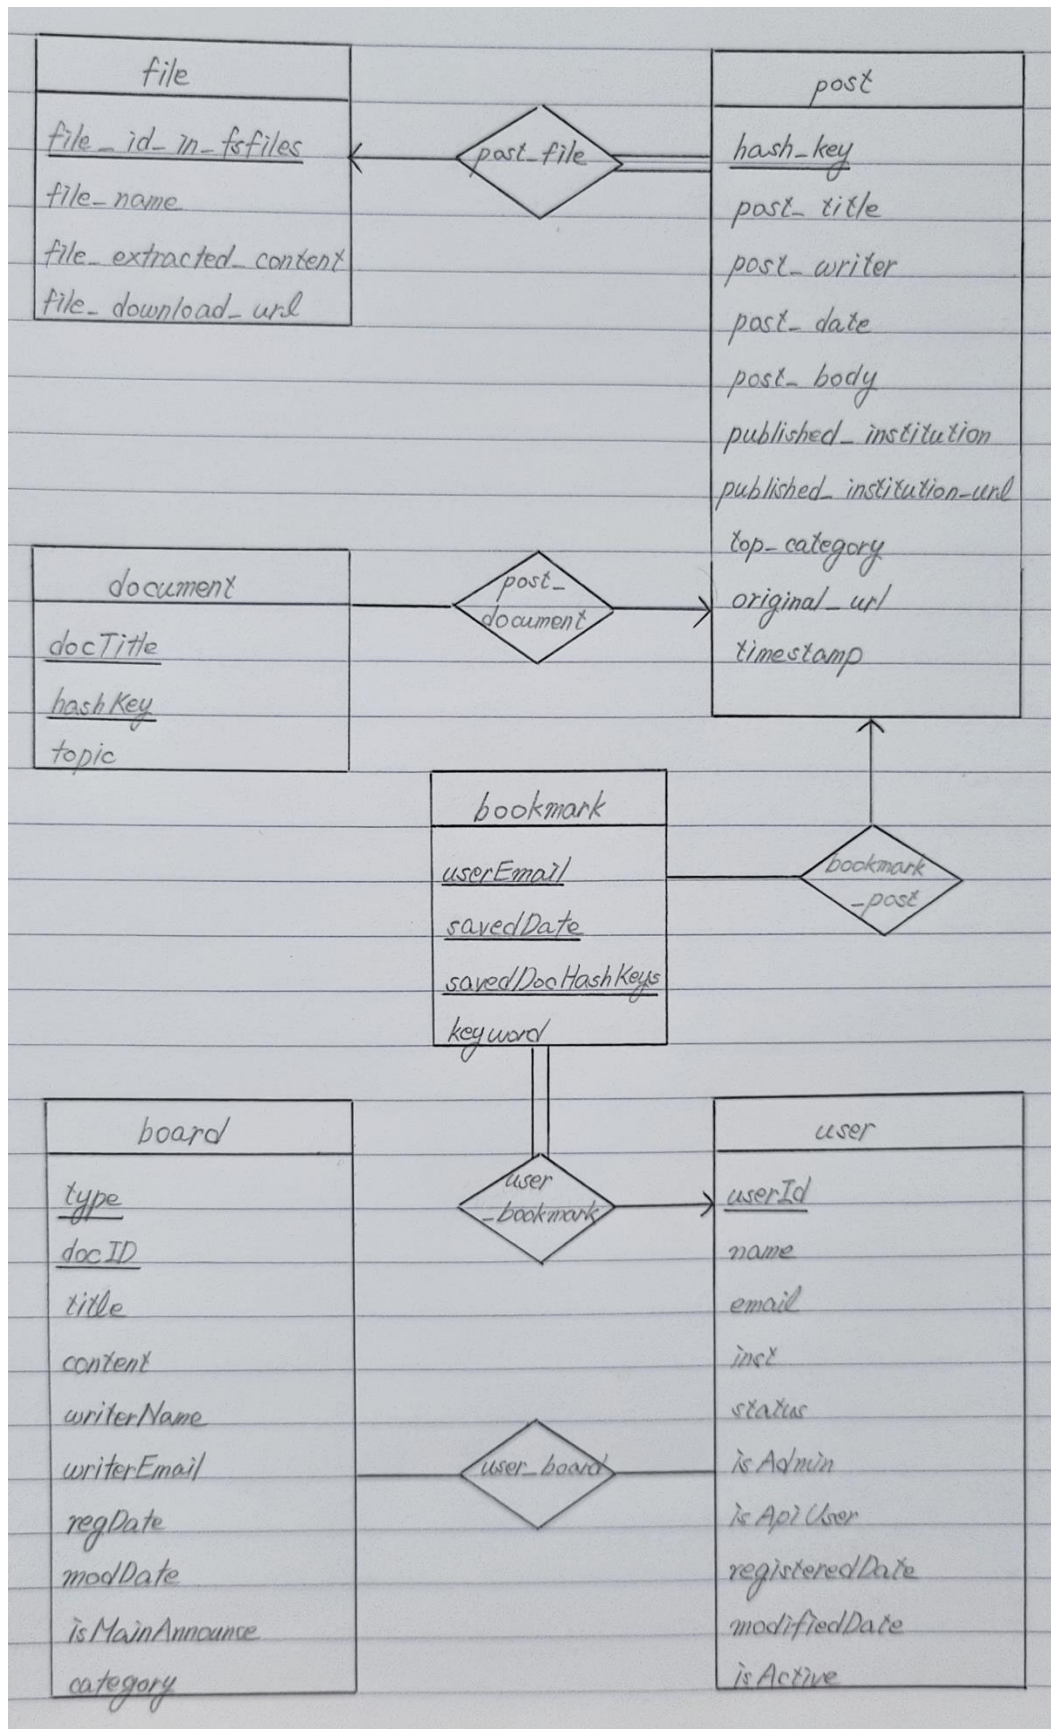 file
file_id_in_fsfiles
file_name
file_extracted_content
file_download_url
post_file
post
hash_key
post_title
post_writer
post_date
post_body
published_institution
published_institution_url
top_category
original_url
timestamp
document
docTitle
hashKey
topic
post_
document
bookmark
userEmail
savedDate
savedDocHashKeys
keyword
bookmark
_post
board
type
docID
title
content
writerName
writerEmail
regDate
modDate
isMainAnnounce
category
user
_bookmark
user_board
user
userId
name
email
inst
status
isAdmin
isApiUser
registeredDate
modifiedDate
isActive